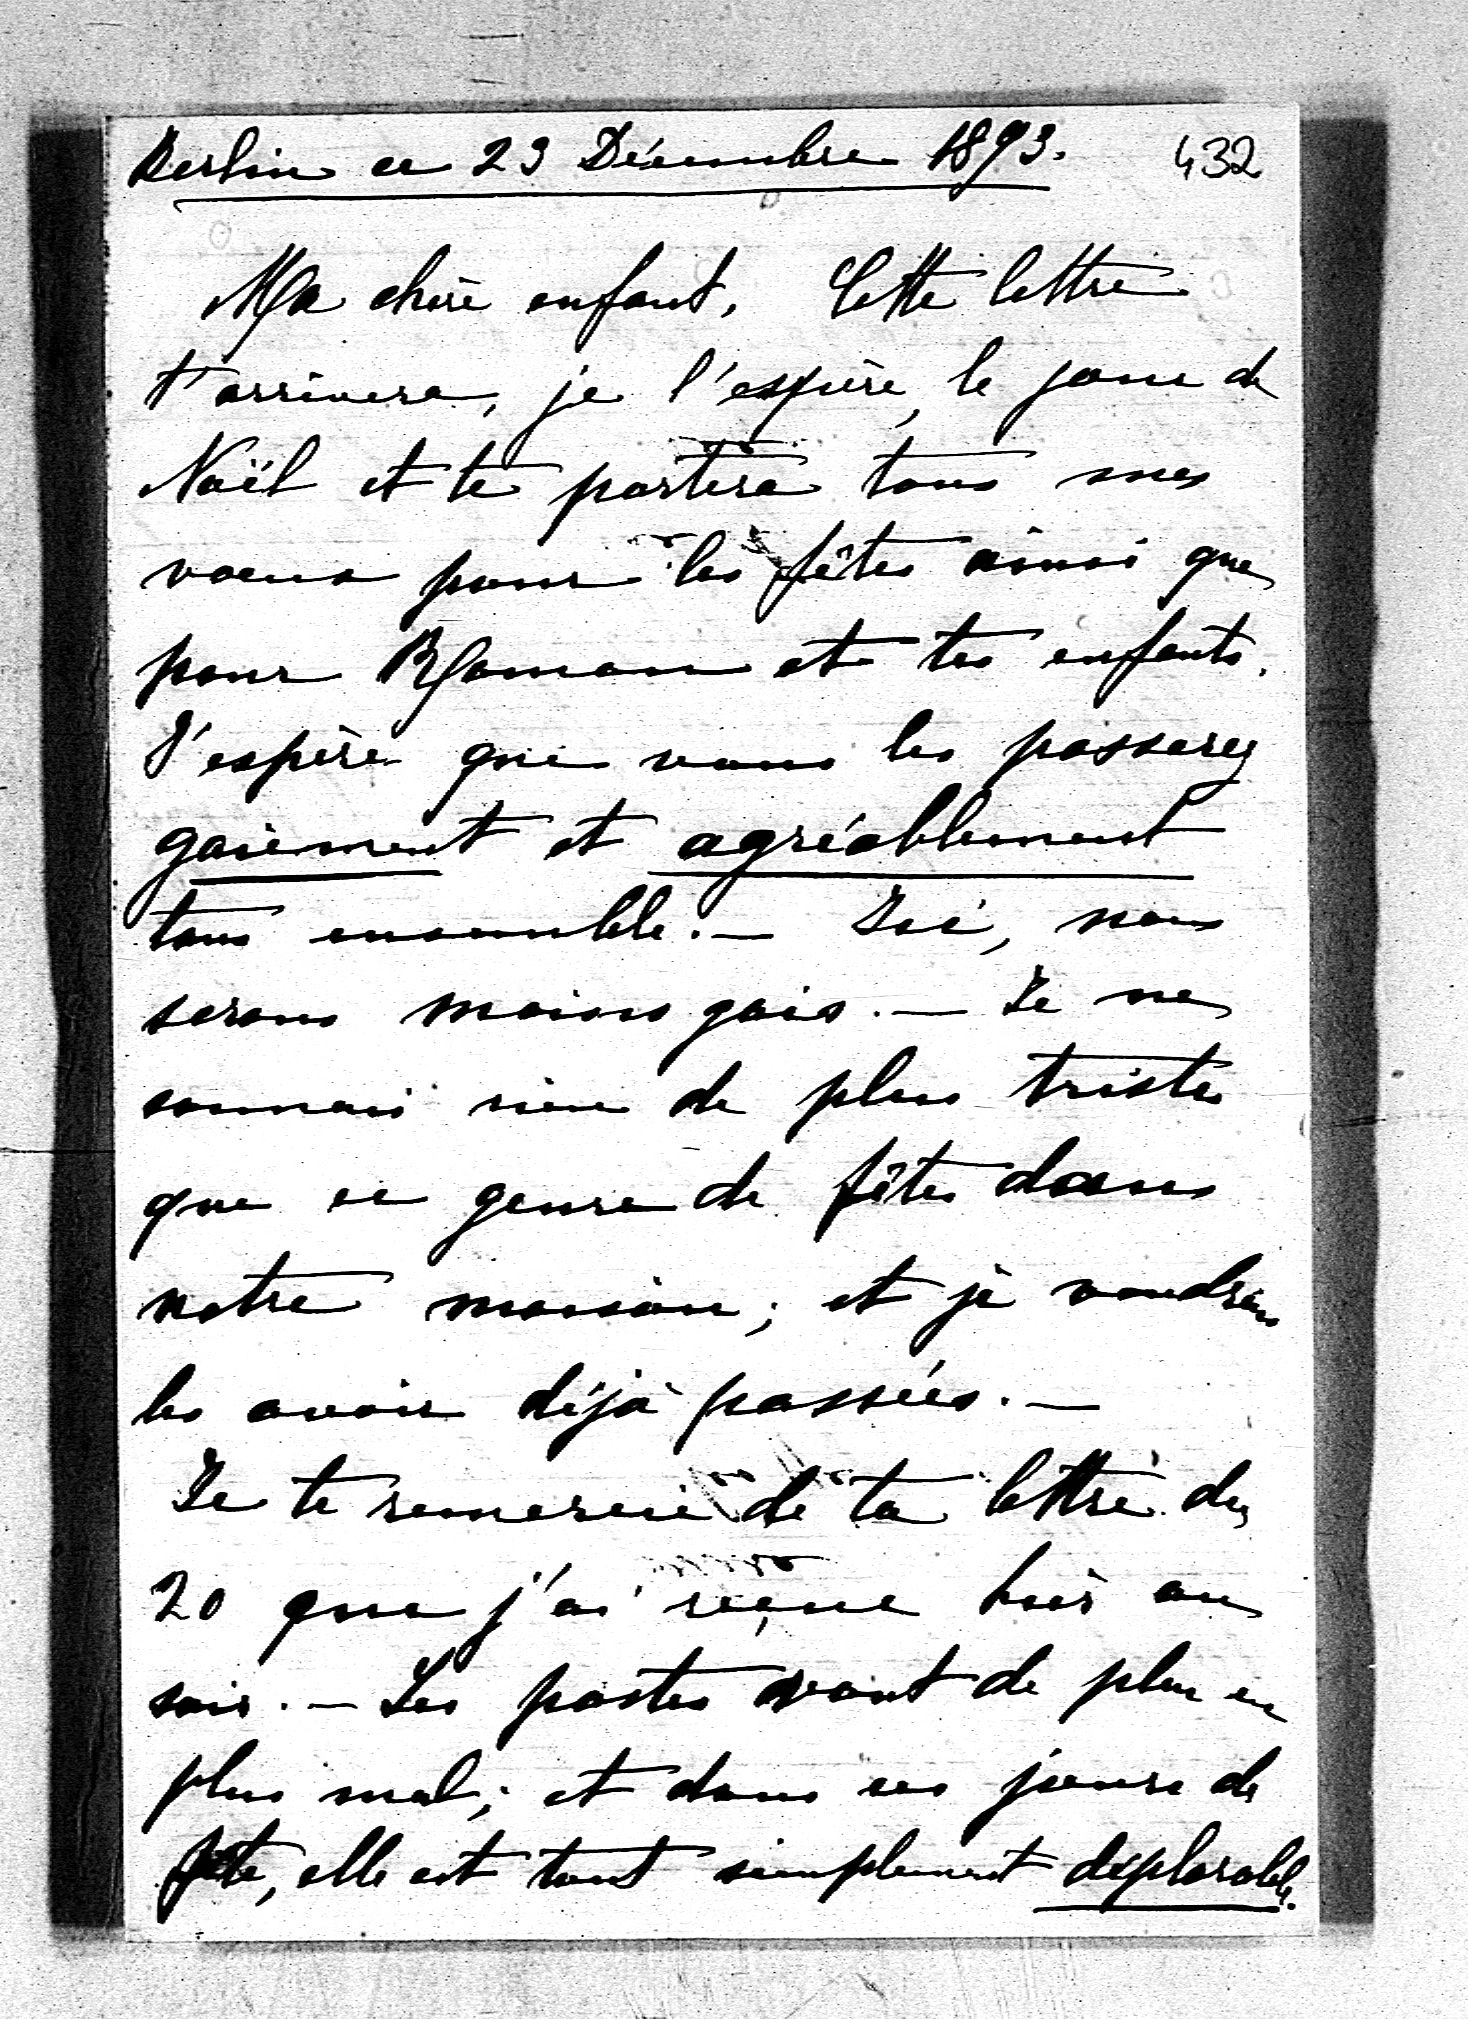 Berlin ce 23 Décembre 1893. 432
Ma chère enfant. Cette lettre
t'arrivera, je l'espère, le jour de
Noël et te portera tous mes
voeux pour les fêtes ainsi que
pour Roman et tes enfants.
J'espère que vous les passerez
gaiement et agréablement
tous ensemble. — Ici, nous
serons moins gais. — Je ne
connais rien de plus triste
que ce genre de fêtes dans
notre maison; et je voudrais
les avoir déjà passées. —
Je te remercie de ta lettre du
20 que j'ai reçue hier au
soir. — Les postes vont de plus en
plus mal; et dans ces jours de
fête, elle est tout simplement déplorable.